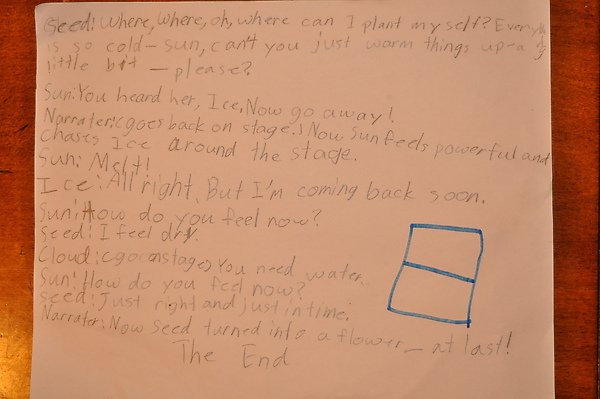 Seed: Where, Where, oh, where can I plant my self? Everything
is so cold - sun, can't you just warm things up - a
little bit - please?
Sun: You heard her, Ice, Now go away!
Narrater: (goes back on stage.) Now Sun feels powerful and
chases Ice around the stage.
Sun: Melt!
Ice: All right, But I'm coming back soon.
Sun: How do you feel now?
Seed: I feel dry.
Cloud: (go on stage) You need water.
Sun: How do you feel now?
Seed: Just right and just in time.
Narrater: Now Seed turned into a flower - at last!
The End